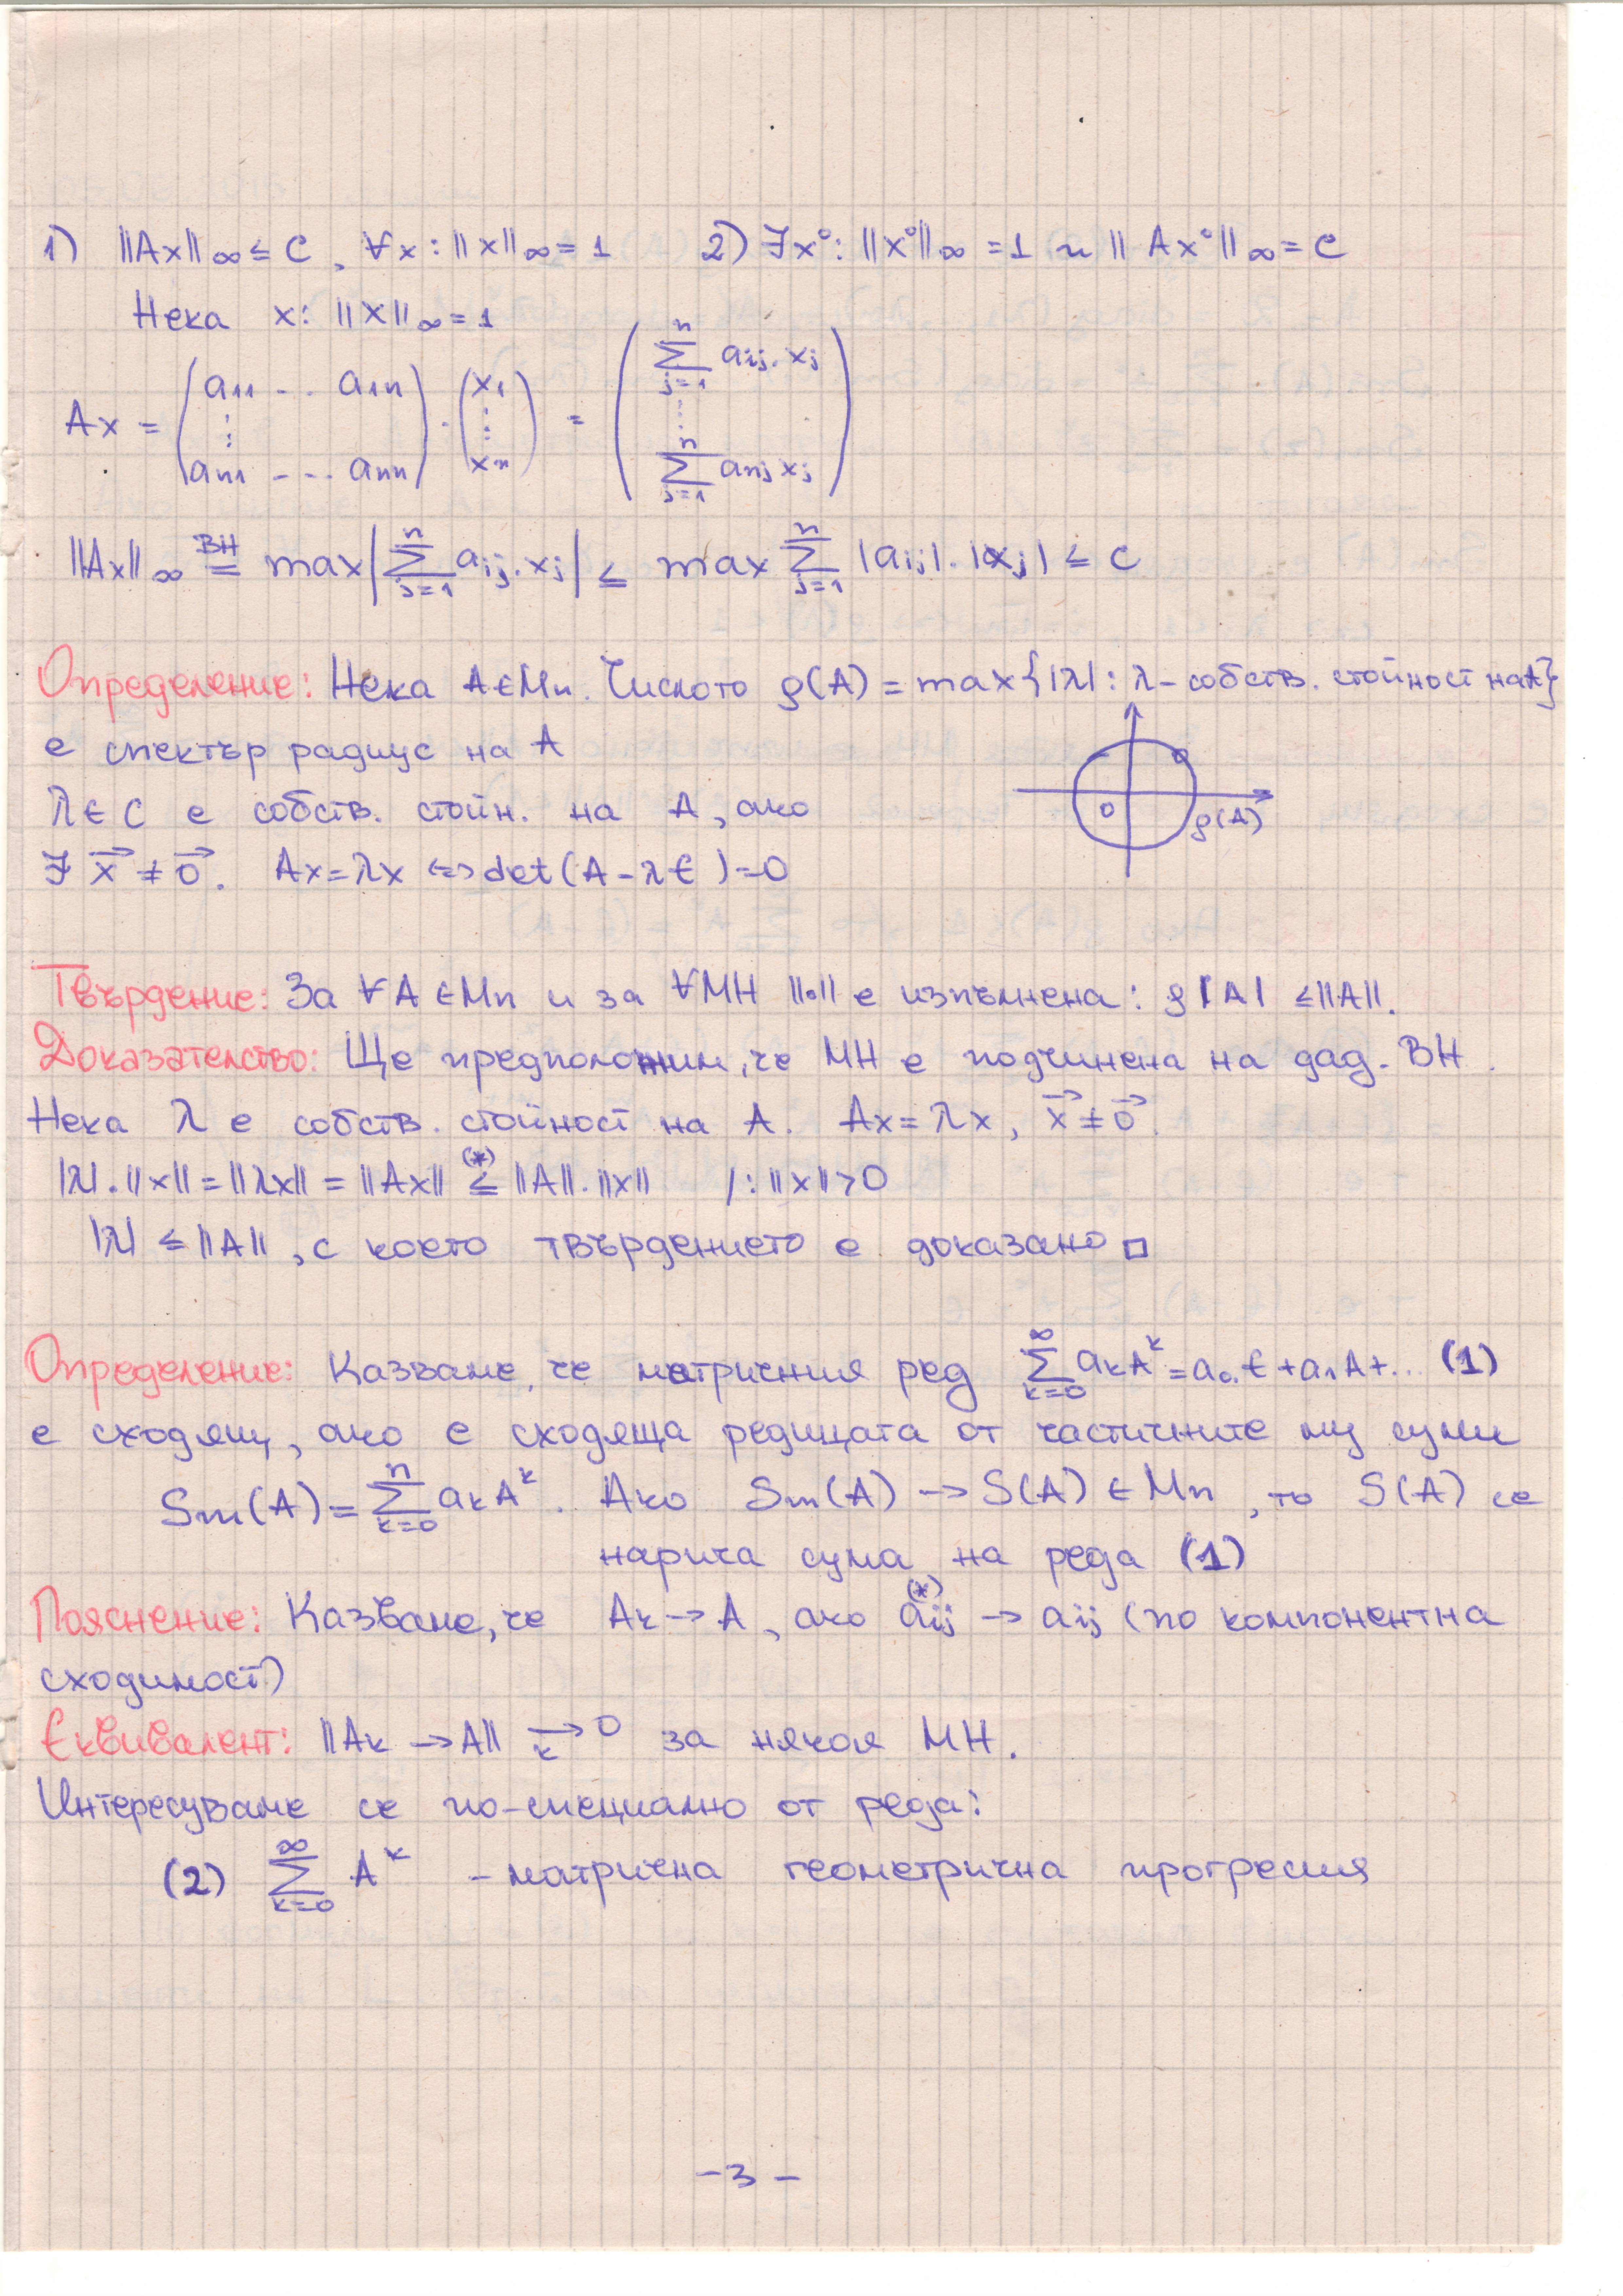 1) ||Ax||∞ ≤ C, ∀x : ||x||∞ = 1 2) ∃x° : ||x°||∞ = 1 и || Ax° ||∞ = C
Нека x: ||x||∞ = 1
Ax = (a11 ... a1n ⋮ an1 ... ann) . (x1 ⋮ xn) = (∑_{j=1}^{n} aij. xj ... ∑_{j=1}^{n} anj xj)
||Ax||∞ =^{ВН} max|∑_{j=1}^{n} aij. xj| ≤ max ∑_{j=1}^{n} |aij|. |xj| ≤ C
Определение: Нека A∈Mn. Числото ρ(A) = max{|λ| : λ - собств. стойност на A}
е спектър радиус на A
λ∈C е собств. стойн. на A, ако
∃ x⃗ ≠ 0⃗. Ax = λx <=> det(A - λE) = 0
0
ρ(A)
Твърдение: За ∀A∈Mn и за ∀МН ||∘|| е изпълнена: ρ|A| ≤ ||A||.
Доказателство: Ще предположим, че МН е подчинена на дад. ВН.
Нека λ е собств. стойност на A. Ax = λx, x⃗ ≠ 0⃗.
|λ|.||x|| = ||λx|| = ||Ax|| ≤^{(*)} ||A||.||x|| /: ||x|| > 0
|λ| ≤ ||A||, с което твърдението е доказано □
Определение: Казваме, че матричния ред ∑_{k=0}^{∞} akA^k = a0.E + a1A + ... (1)
е сходящ, ако е сходяща редицата от частичните му суми
Sm(A) = ∑_{k=0}^{n} akA^k. Ако Sm(A) → S(A) ∈ Mn, то S(A) се
нарича сума на реда (1)
Пояснение: Казваме, че Ak → A, ако aij^{(*)} → aij (по компонентна
сходимост)
Еквивалент: ||Ak → A|| →_k 0 за някоя МН.
Интересуваме се по-специално от реда:
(2) ∑_{k=0}^{∞} A^k - матрична геометрична прогресия
- 3 -